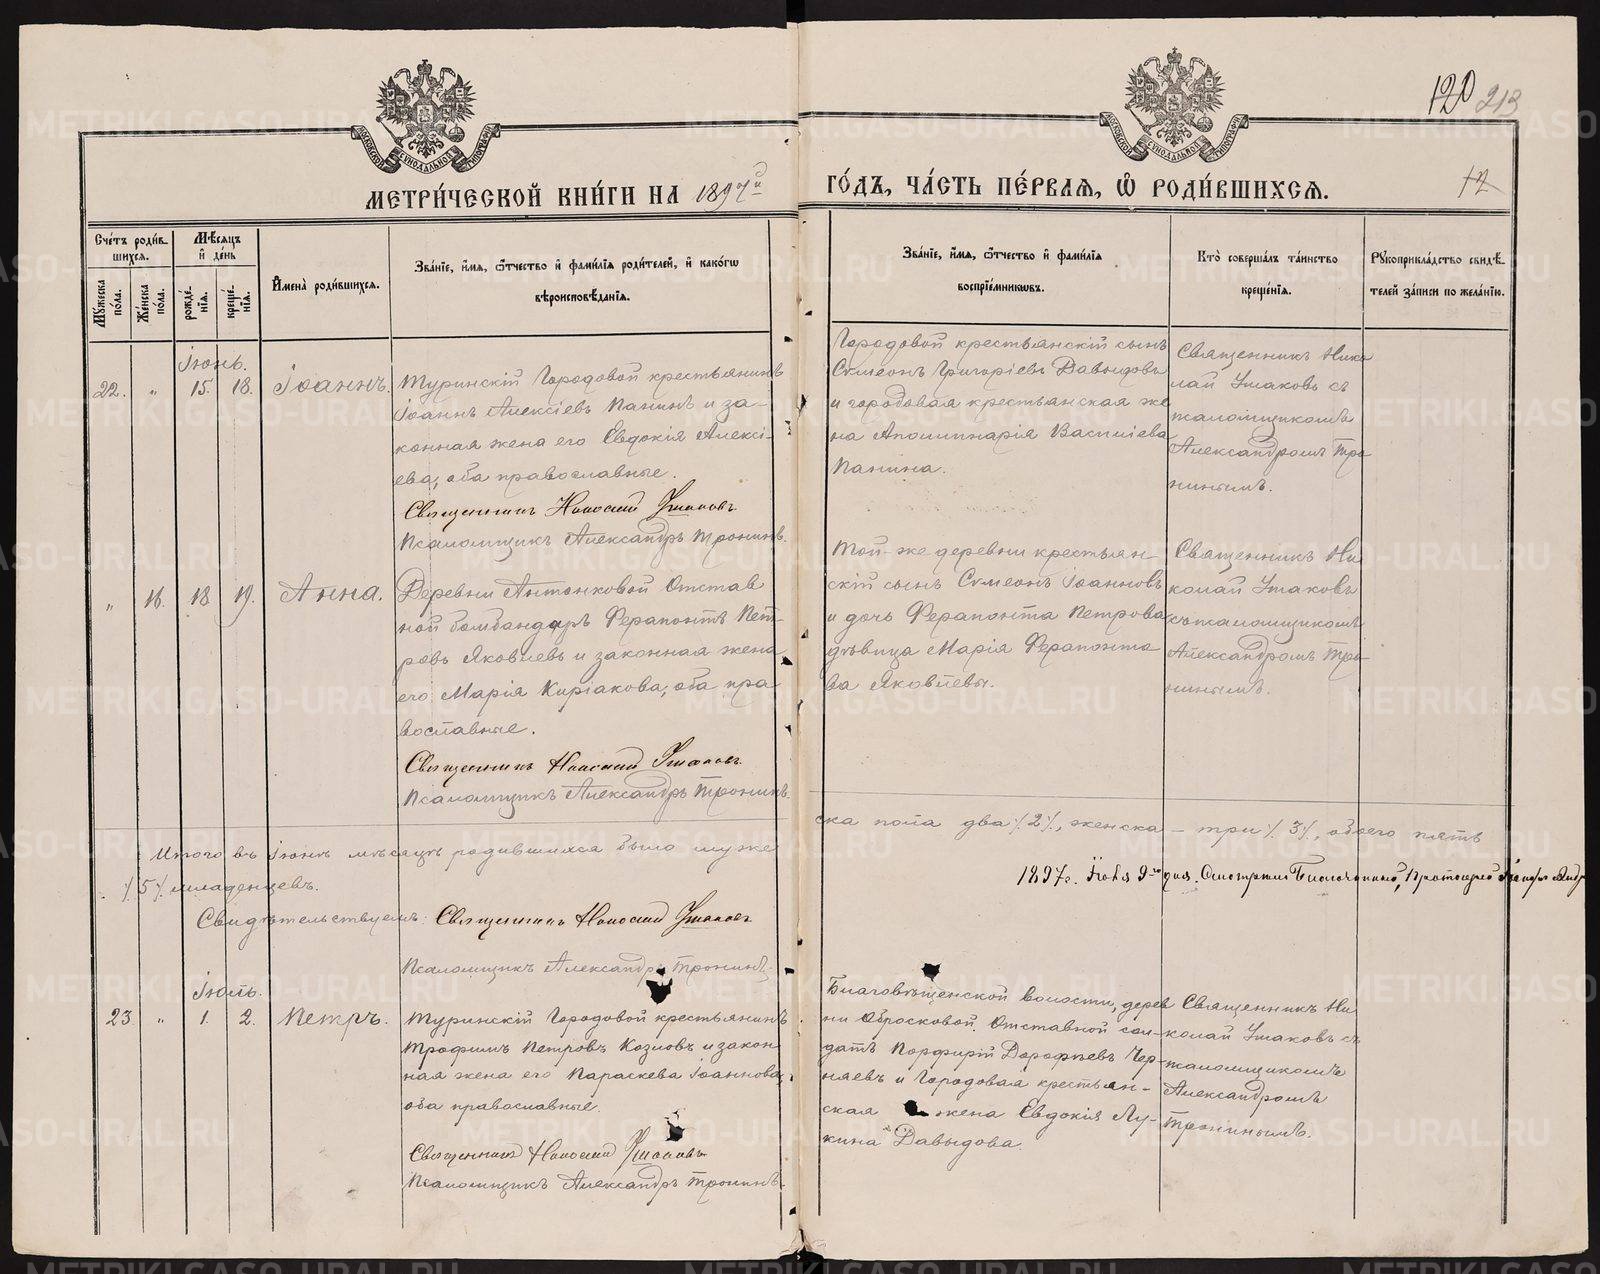 120 213
МЕТРИ́ЧЕСКОЙ КНИ́ГИ НА 1897й
ГО́ДЪ, ЧА́СТЬ ПЕ́РВАѦ, Ѽ РОДИ́ВШИХСѦ.
12
Сче́тъ роди́в-
шихсѧ.
Мѣ́сѧцъ
и҆ де́нь
Мꙋ́жеска
по́ла.
Же́нска
по́ла.
рожде́-
нїѧ.
креще́-
нїѧ.
И҆мена̀ роди́вшихсѧ.
Зва́нїе, и҆́мѧ, ѻ҆́тчество и҆ фами́лїѧ роди́телей, и҆ како́гѡ
вѣроисповѣ́данїѧ.
Зва́нїе, и҆́мѧ, ѻ҆́тчество и҆ фами́лїѧ
воспрїе́мникѡвъ.
Кто̀ соверша́лъ та́инство
креще́нїѧ.
Рꙋкоприкла́дство свидѣ́-
телей за́писи по жела́нїю.
Іюнь.
22. " 15. 18. Іоаннъ.
Туринскій Городовой крестьянинъ
Іоаннъ Алексіевъ Панинъ и за-
конная жена его Евдокія Алексі-
ева, оба православные.
Священникъ Николай Ушаковъ
Псаломщикъ Александръ Тронинъ.
Городовой крестьянскій сынъ
Симеонъ Григоріевъ Давыдовъ
и городовая крестьянская же
на Аполинарія Василіева
Панина.
Священникъ Нико
лай Ушаковъ съ
псаломщикомъ
Александромъ Тро
нинымъ.
" 16. 18 19. Анна.
Деревни Антонковой Отстав
ной бомбандаръ Ферапонтъ Пет-
ровъ Яковлевъ и законная жена
его Марія Киріакова, оба пра
вославные.
Священникъ Николай Ушаковъ
Псаломщикъ Александръ Тронинъ.
Той-же деревни крестьян-
скій сынъ Симеонъ Іоанновъ
и дочь Ферапонта Петрова
дѣвица Марія Ферапонто
ва Яковлевы.
Священникъ Ни
колай Ушаковъ
съ псаломщикомъ
Александромъ Тро-
нинымъ.
Итого въ Іюнѣ мѣсяцѣ родившихся было муже
ска пола два /2/, женска - три /3/, обоего пять
/5/ младенцевъ.
1897г. Іюля 9го дня. Смотрилъ Благочинный, Протоіерей
Свидѣтельствуемъ: Священникъ Николай Ушаковъ
Псаломщикъ Александръ Тронинъ.
Іюль.
23 " 1. 2. Петръ.
Туринскій Городовой крестьянинъ
Трофимъ Петровъ Козловъ и закон
ная жена его Параскева Іоаннова,
оба православные.
Священникъ Николай Ушаковъ
Псаломщикъ Александръ Тронинъ.
Благовѣщенской волости, дерев
ни Обросковой. Отставной сол-
датъ Порфирій Дорофеевъ Чер-
няевъ и Городовая крестьян-
ская жена Евдокія Лу-
кина Давыдова.
Священникъ Ни-
колай Ушаковъ съ
псаломщикомъ
Александромъ
Тронинымъ.